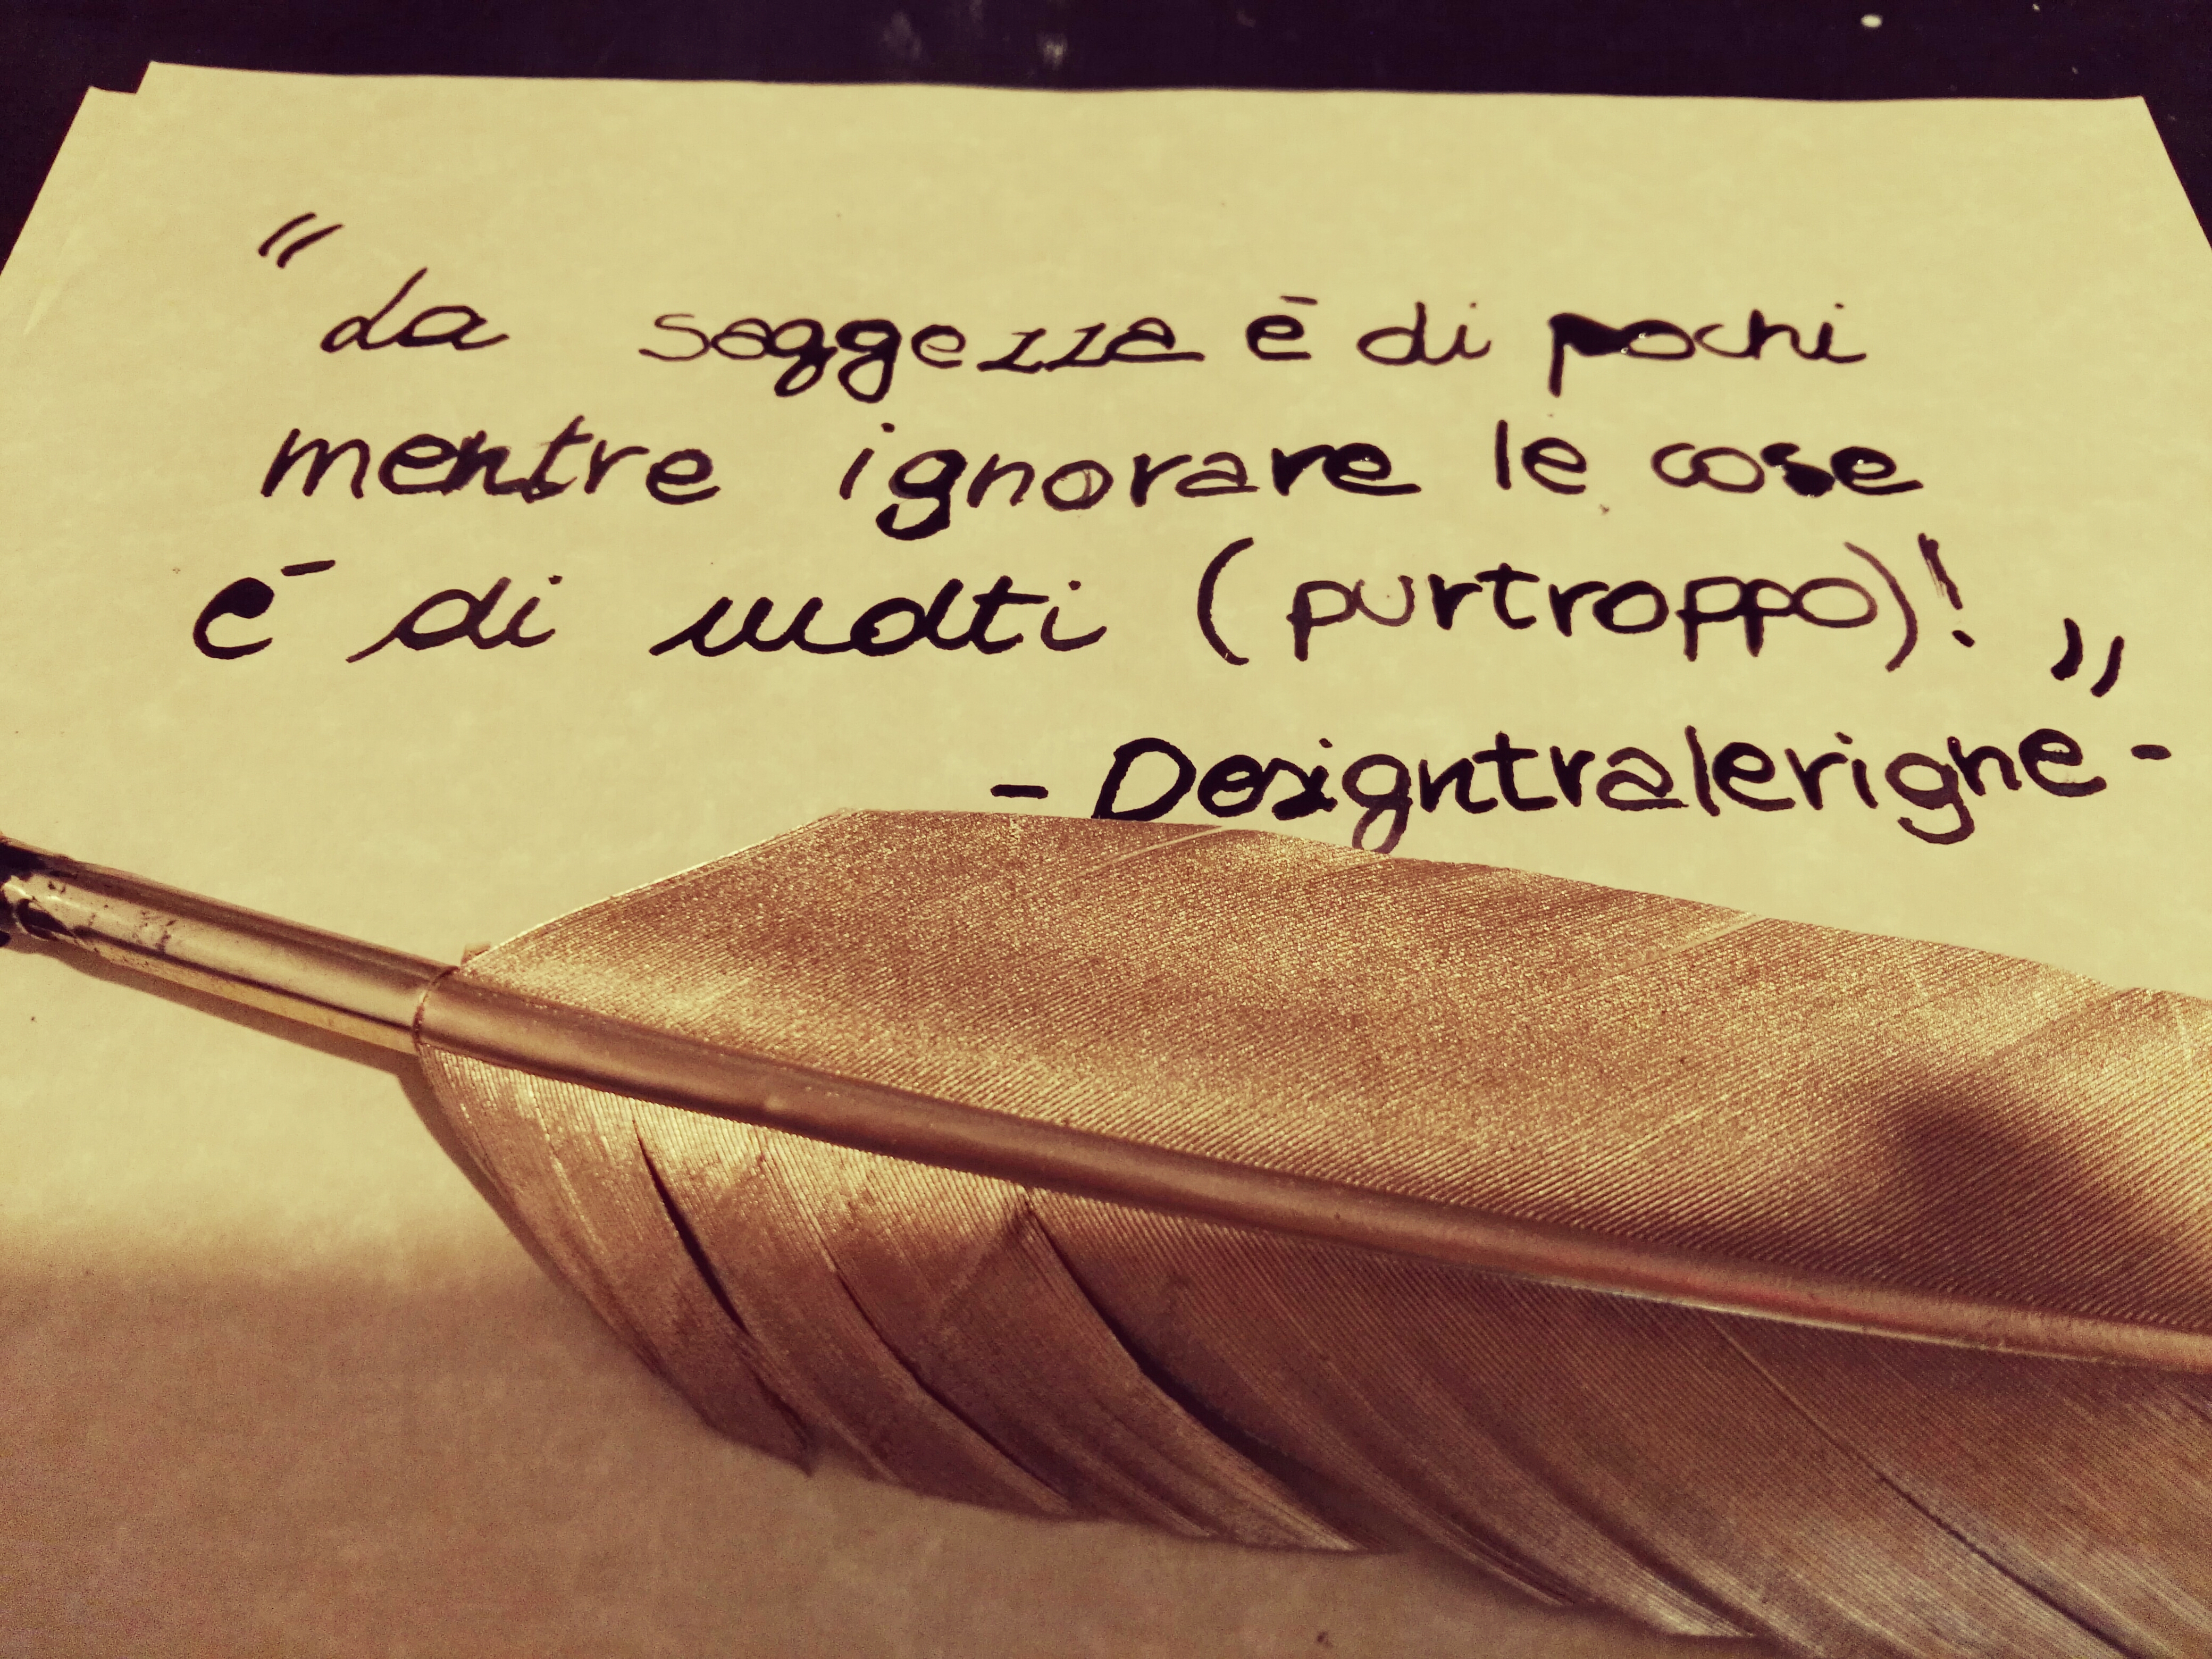 "La saggezza è di pochi
mentre ignorare le cose
è di molti (purtroppo)!"
- Designtralerighe -